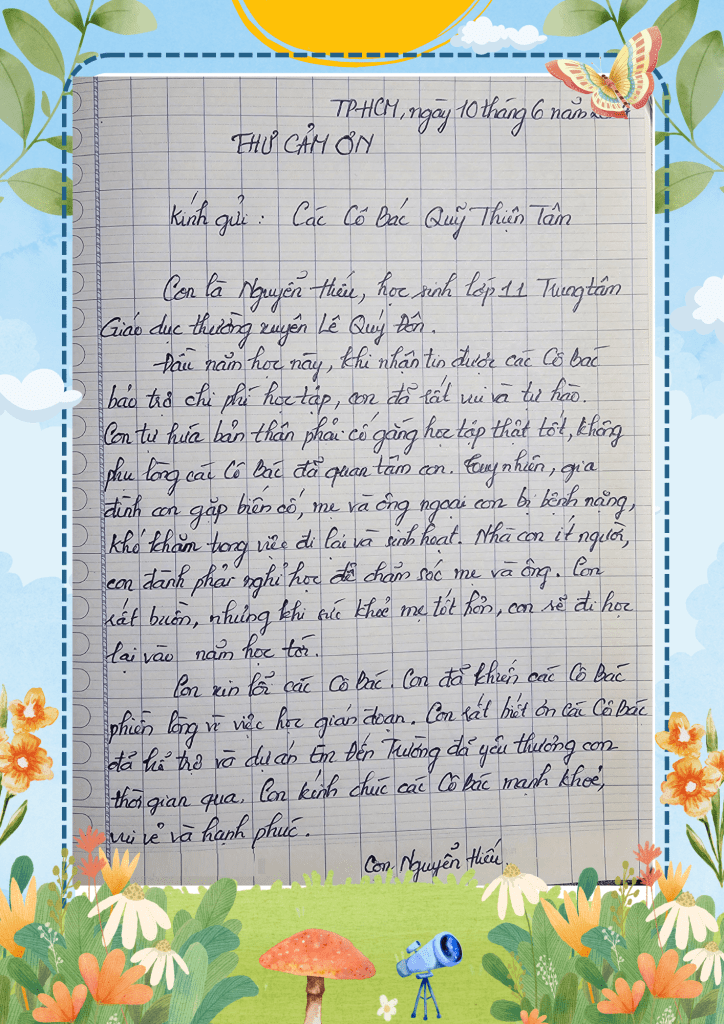 TP-HCM, ngày 10 tháng 6 năm
THƯ CẢM ƠN
Kính gửi : Các Cô Bác Quỹ Thiện Tâm
Con là Nguyễn Hiếu, học sinh lớp 11 Trung tâm
Giáo dục thường xuyên Lê Quý Đôn.
Đầu năm học này, khi nhận tin được các Cô Bác
bảo trợ chi phí học tập, con đã rất vui và tự hào.
Con tự hứa bản thân phải cố gắng học tập thật tốt, không
phụ lòng các Cô Bác đã quan tâm con. Tuy nhiên, gia
đình con gặp biến cố, mẹ và ông ngoại con bị bệnh nặng,
khó khăn trong việc đi lại và sinh hoạt. Nhà con ít người,
con đành phải nghỉ học để chăm sóc mẹ và ông. Con
rất buồn, nhưng khi sức khoẻ mẹ tốt hơn, con sẽ đi học
lại vào năm học tới.
Con xin lỗi các Cô Bác. Con đã khiến các Cô Bác
phiền lòng vì việc học gián đoạn. Con rất biết ơn các Cô Bác
đã hỗ trợ và dự án Em Đến Trường đã yêu thương con
thời gian qua. Con kính chúc các Cô Bác mạnh khoẻ,
vui vẻ và hạnh phúc.
Con Nguyễn Hiếu.